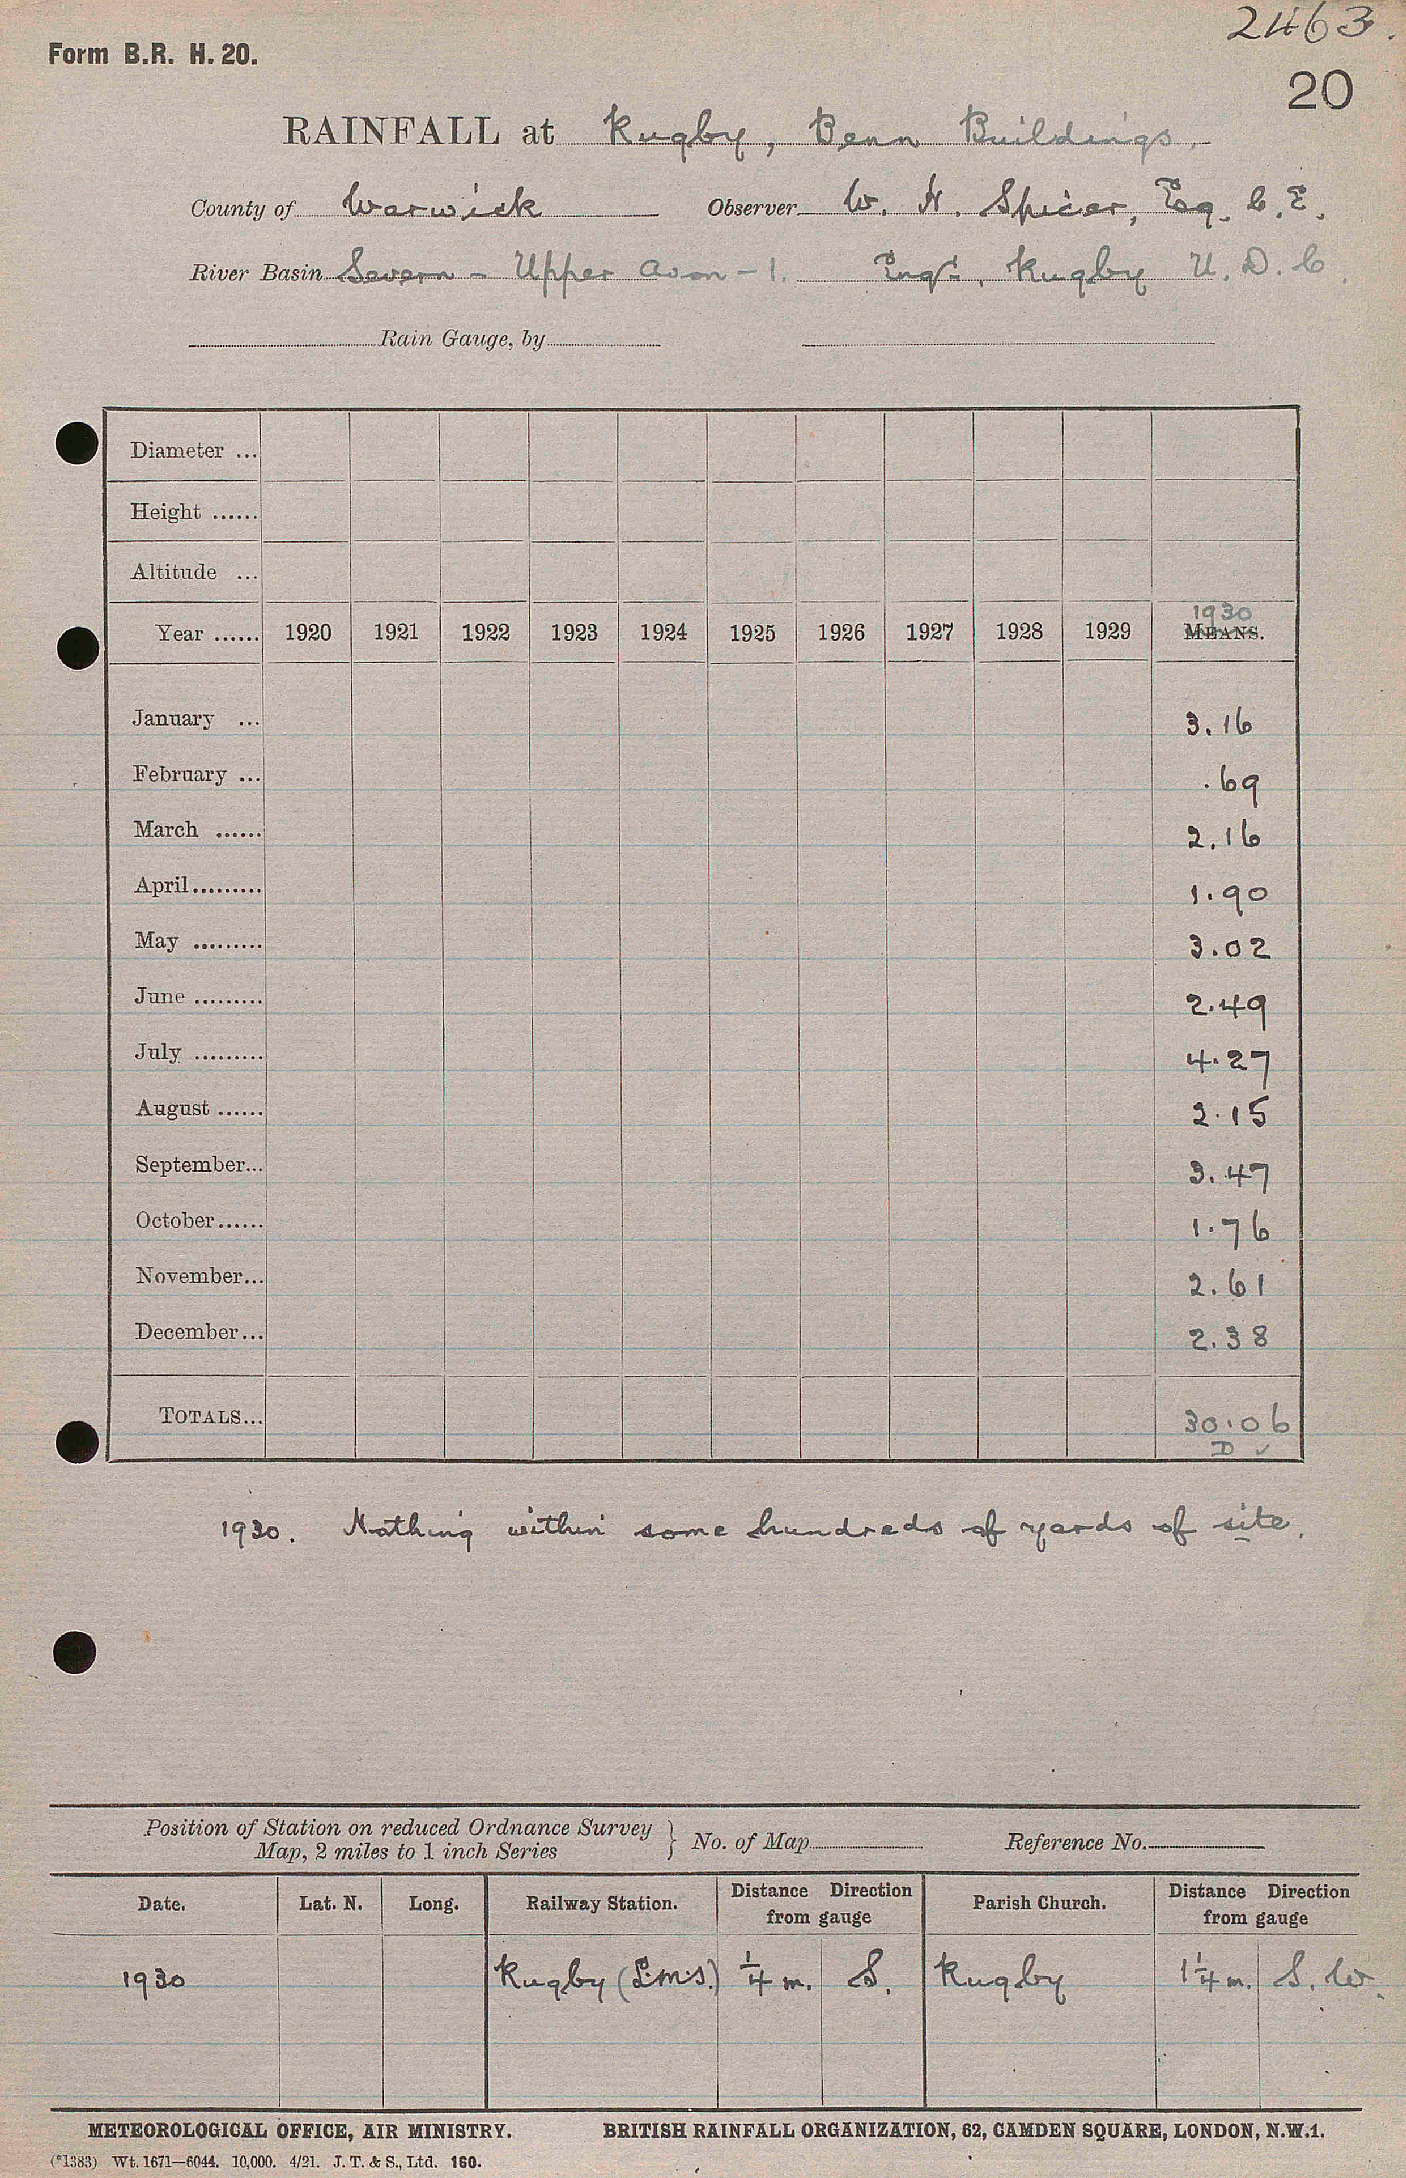 2463.
Form B.R. H. 20.
20
RAINFALL at Rugby, Benn Buildings.
County of Warwick Observer W. H. Spicer, Esq. C.E.
River Basin Severn - Upper Avon - 1. Engr., Rugby U.D.C.
Rain Gauge, by
Diameter ...
Height ......
Altitude ...
1930
Year ...... 1920 1921 1922 1923 1924 1925 1926 1927 1928 1929 MEANS.
January ... 3.16
February ... .69
March ...... 2.16
April......... 1.90
May ......... 3.02
June ......... 2.49
July ......... 4.27
August ...... 2.15
September... 3.47
October...... 1.76
November... 2.61
December... 2.38
TOTALS... 30.06
D ✓
1930. Nothing within some hundreds of yards of site.
Position of Station on reduced Ordnance Survey
Map, 2 miles to 1 inch Series } No. of Map Reference No.
Date. Lat. N. Long. Railway Station. Distance Direction from gauge Parish Church. Distance Direction from gauge
1930 Rugby (L.M.S.) 1/4 m. S. Rugby 1 1/4 m. S. W.
METEOROLOGICAL OFFICE, AIR MINISTRY. BRITISH RAINFALL ORGANIZATION, 62, CAMDEN SQUARE, LONDON, N.W.1.
(*1383) Wt. 1671—6044. 10,000. 4/21. J. T. & S., Ltd. 160.